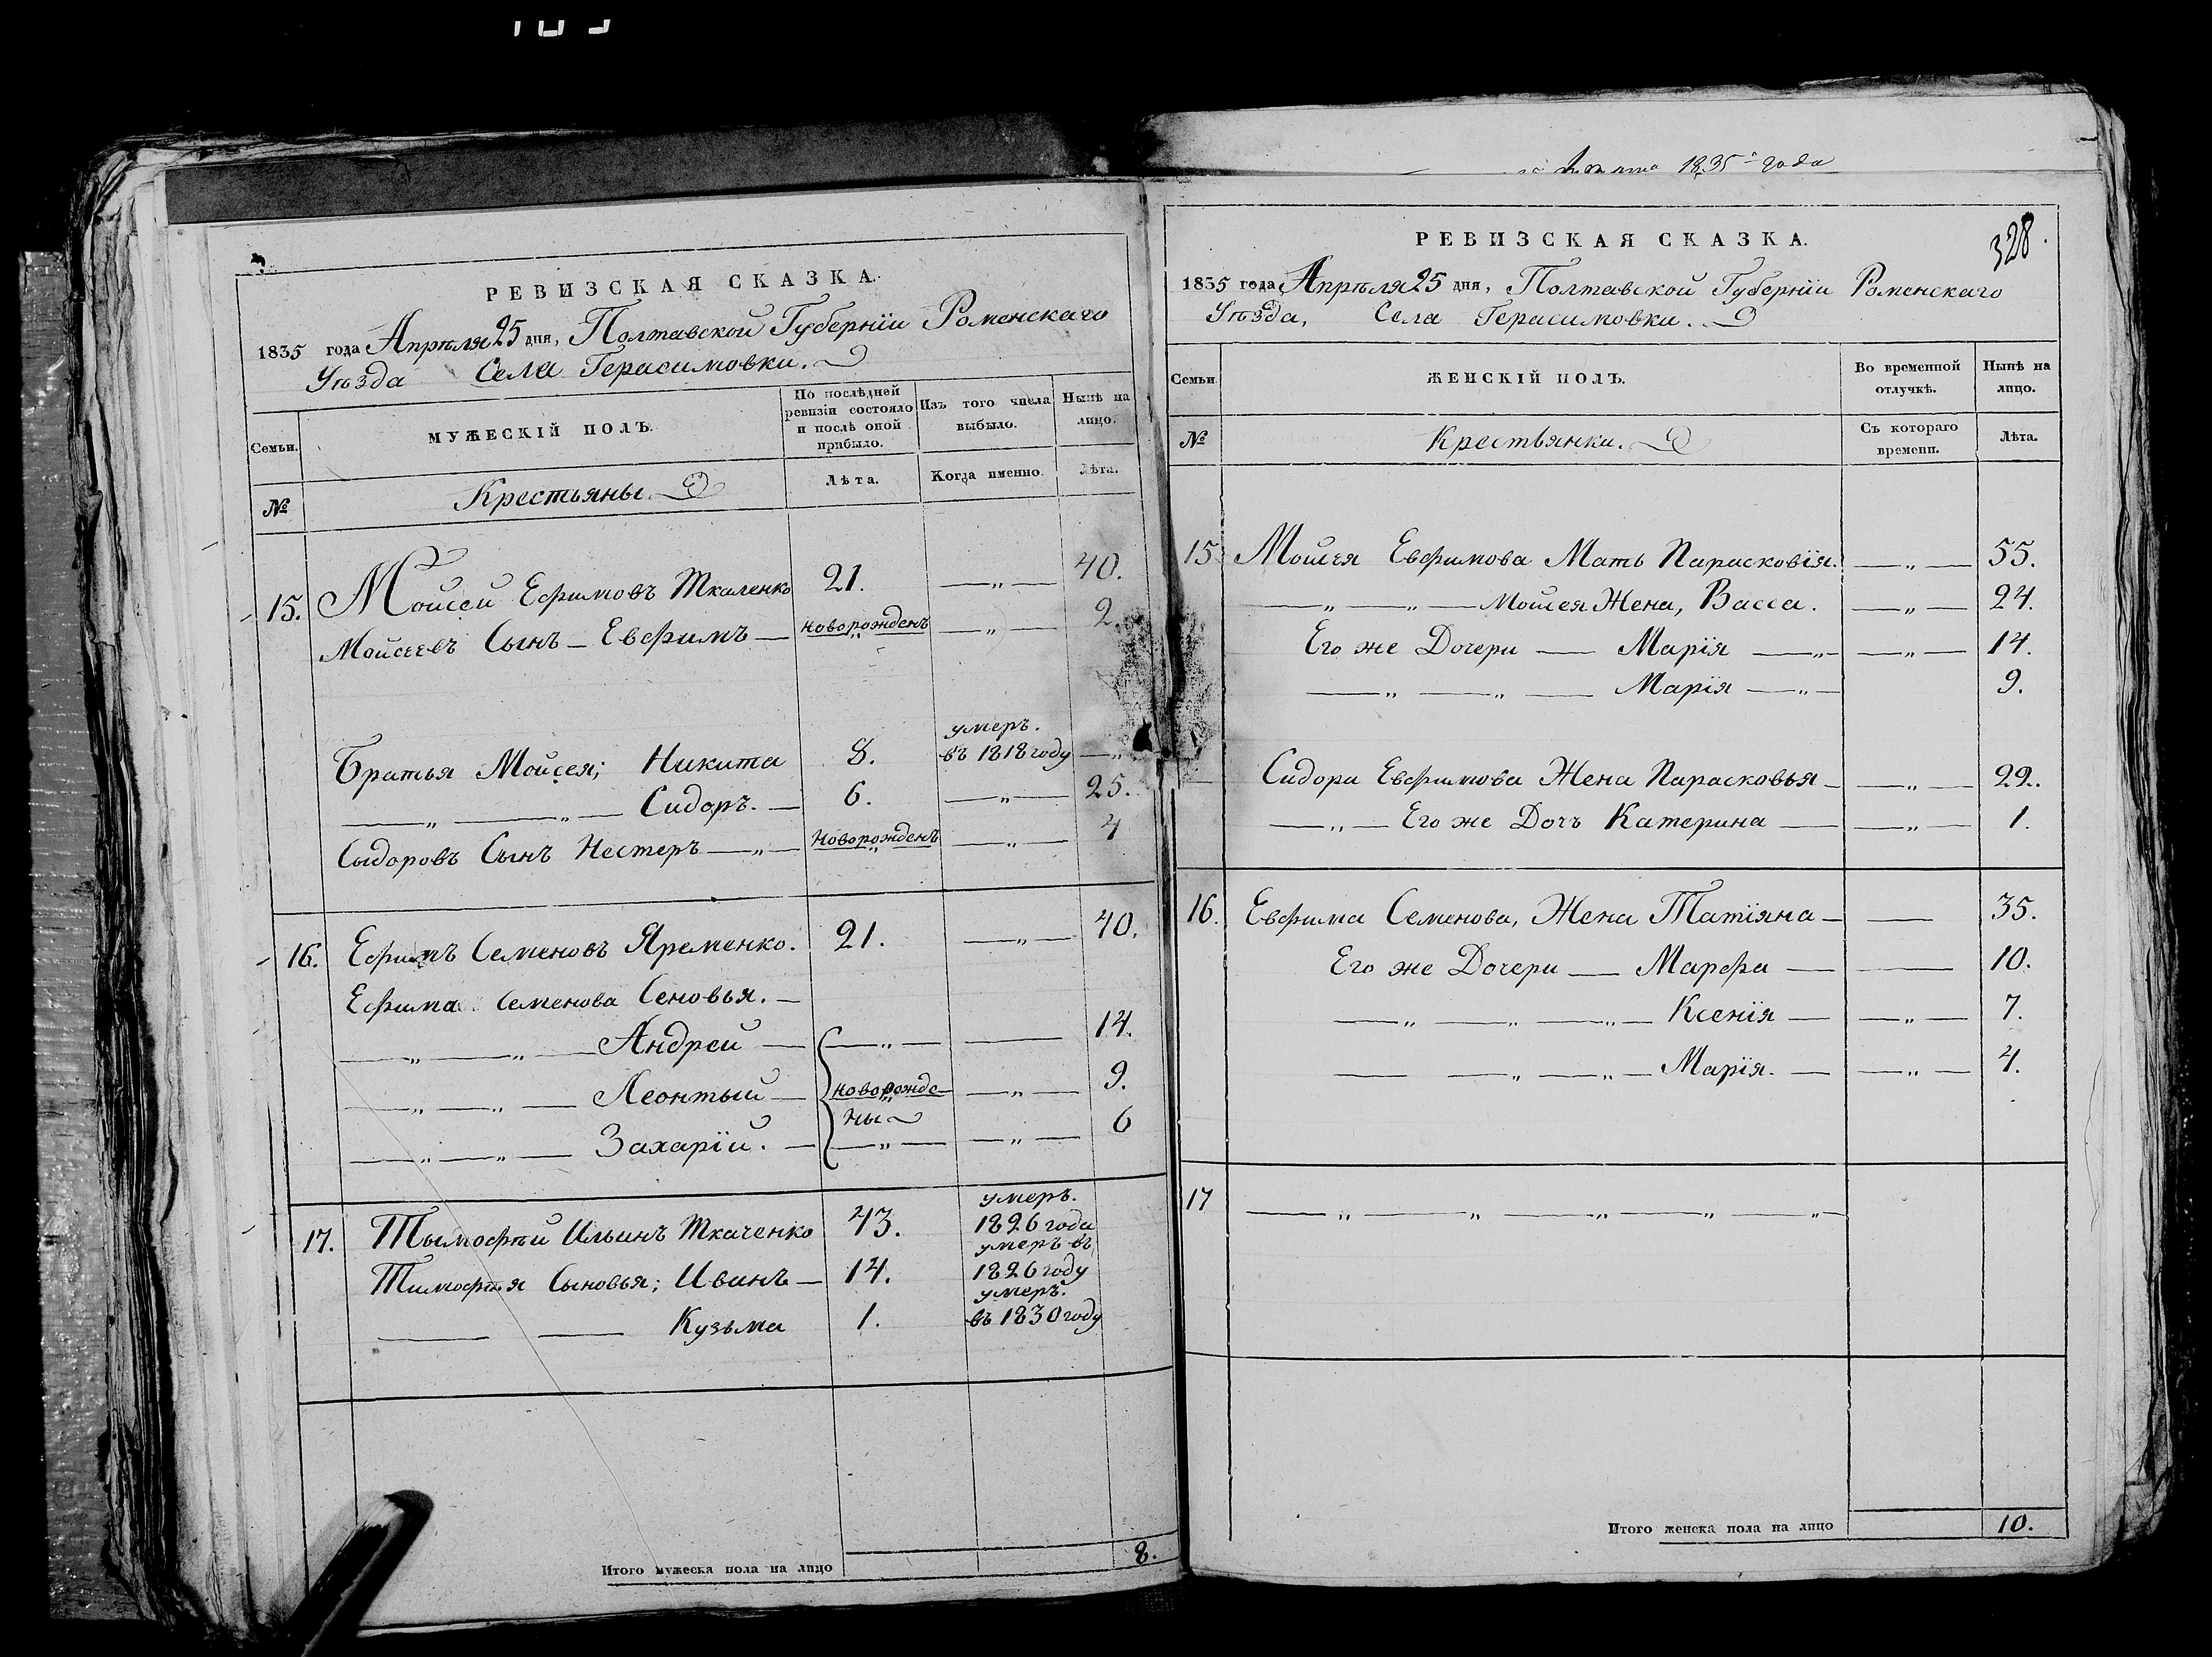 Апреля 1835 года
РЕВИЗСКАЯ СКАЗКА.
1835 года Апрѣля 25 дня, Полтавской Губерніи Роменскаго
Уѣзда Села Герасимовки.
Семьи. МУЖЕСКІЙ ПОЛЪ. По послѣдней ревизіи состояло и послѣ оной прибыло. Изъ того числа выбыло. Нынѣ на лицо.
№ Крестьяны. Лѣта. Когда именно. Лѣта.
15. Мойсей Ефимовъ Ткаленко 21. —„— 40.
Мойсеевъ Сынъ — Евфимъ — новорожденъ —„— 2.
умеръ.
Братья Мойсея; Никита 8. въ 1818 году —„
—„— —„— Сидоръ. — 6. —„— 25.
Сыдоровъ Сынъ Нестеръ —„— Новорожденъ —„— 4
16. Ефимъ Семеновъ Яременко. 21. —„— 40.
Ефима Семенова Сеновья. —
—„— —„— Андрей — —„— — 14.
—„— —„— Леонтый — новорожде- —„— 9.
ны
—„— —„— Захарій. — —„— —„— 6
умеръ.
17. Тымофѣй Ильинъ Ткаченко 43. 1826 года
умеръ въ
Тимофѣя Сыновья; Иванъ — 14. 1826 году
умеръ.
— — Кузьма 1. въ 1830 году
Итого мужеска пола на лицо 8.
РЕВИЗСКАЯ СКАЗКА.
328.
1835 года Апрѣля 25 дня, Полтавской Губерніи Роменскаго
Уѣзда, Села Герасимовки.
Семьи. ЖЕНСКІЙ ПОЛЪ. Во временной отлучкѣ. Нынѣ на лицо.
№ Крестьянки. Съ котораго времени. Лѣта.
15 Мойсея Евфимова Мать Парасковія. —„— 55.
—„— —„— Мойсея Жена, Васса. —„— 24.
Его же Дочери — Марія —„— —„— 14.
—„— —„— — Марія —„— 9.
Сидора Евфимова Жена Парасковья — —„— 22.
—„— Его же Дочь Катерина — —„— 1.
16. Евфима Семенова, Жена Татіяна — — 35.
Его же Дочери — Марфа — — 10.
—„— —„— —„— Ксенія — —„— 7.
— —„— —„— Марія. — —„— 4.
17 —„— —„— —„— —„— —„—
Итого женска пола на лицо 10.